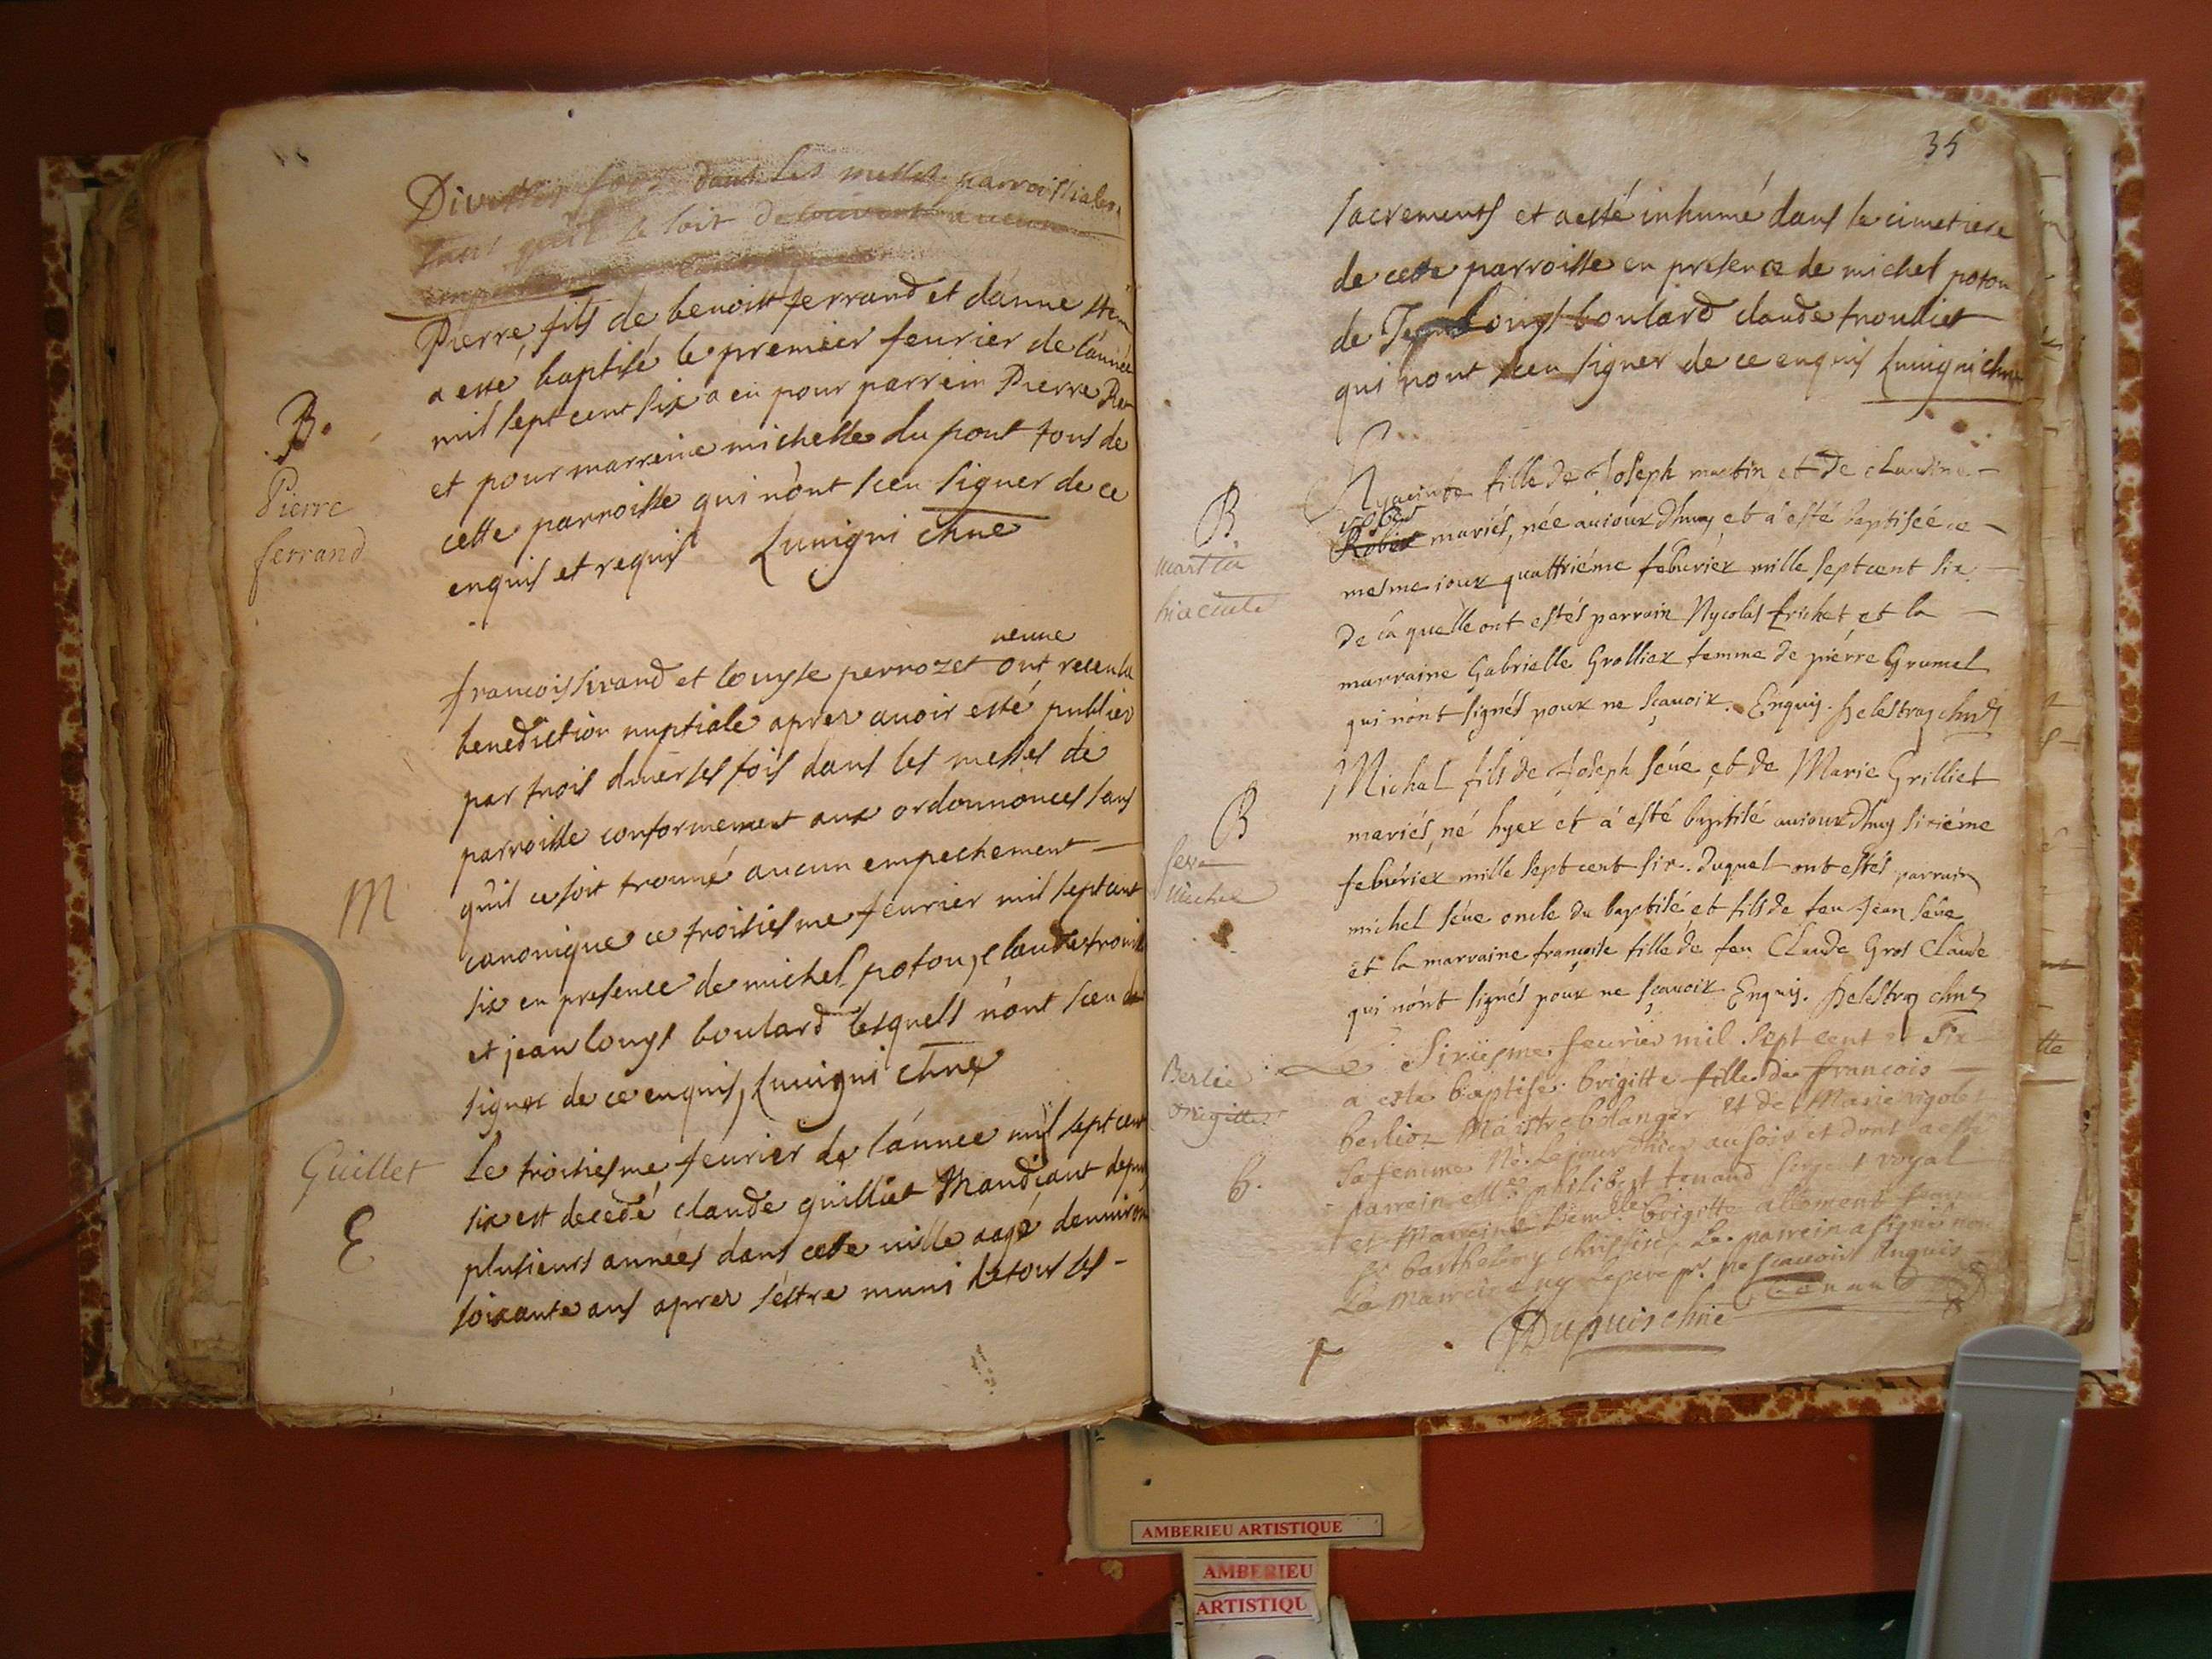 Diverses fois dans les messes parroissiales
sans qu'il se soit découvert aucun
B.
Pierre
ferrand
Pierre, fils de benoist ferrand et danne
a esté baptisé le premier feurier de lánnée
mil sept cent six a eu pour parrein Pierre
et pour marreine michelle du pont tous de
cette parroisse qui nónt sceu signer de ce
enquis et requis Luuigni chne
M
veuue
francois sirand et louyse perrozet ont receu la
benediction nuptiale apres auoir esté publiés
par trois diuerses fois dans les messes de
parroisse conformement aux ordonnonces sans
qu'il ce soit trouué aucun empechement
canonique ce troisiesme feurier mil sept cent
six en presence de michel poton, claude
et jean louys boulard lesquels nónt sceu
signer de ce enquis, Luuigni chne
Guillet
E
Le troisiesme feurier de lánnee mil sept cent
six est decedé claude guilliet Mandiant depuis
plusieurs années dans cette uille aagé denuiron
soixante ans apres séstre muni de tous les -
35
sacrements et a esté inhumé dans le cimetiere
de cette parroisse en presence de michel poton
de Jean Louys boulard claude trouilliet
qui nont sceu signer de ce enquis Luuigni chne
B
martin
hiacinte
Hyacinte fille de Joseph martin et de claudine -
Robin mariés, née auiourdhuy et á esté baptisée ce -
mesme iour quattriéme feburier mille sept cent six. -
De laquelle ont estés parrain Nycolas frichet et la -
marraine Gabrielle Grollier femme de piérre Grumel
qui nónt signés pour ne sçauoir. Enquis. Delestraz chne
B
seve
Michel
Michel fils de Joseph séue et de Marie Grilliet
mariés, né hyer et á esté baptisé auiourdhuy sixiéme
febúrier mille sept cent six. Duquel ont estés parrain
michel séue oncle du baptisé et fils de feu Jean séue
et la marraine françoise fille de feu Claude Gros Claude
qui nónt signés pour ne sçauoir Enquis. Delestraz chne
Berlie
Brigitte
B.
Le Sixiiesme feurier mil Sept cent et Six
a este baptise brigitte fille de francois
berlioz Maistre bolanger et de Marie rigolet
Sa femme Né Le jour dhier au soir et dont a esté
parrein Mre philibert tenand sergent royal
et Marreine Demlle brigitte
Sr barthelemy Le parrein a signé non
La Marreine ny Lepere pr ne scauoir Enquis
Tenand
Dupuis chne
AMBERIEU ARTISTIQUE
AMBERIEU
ARTISTIQU